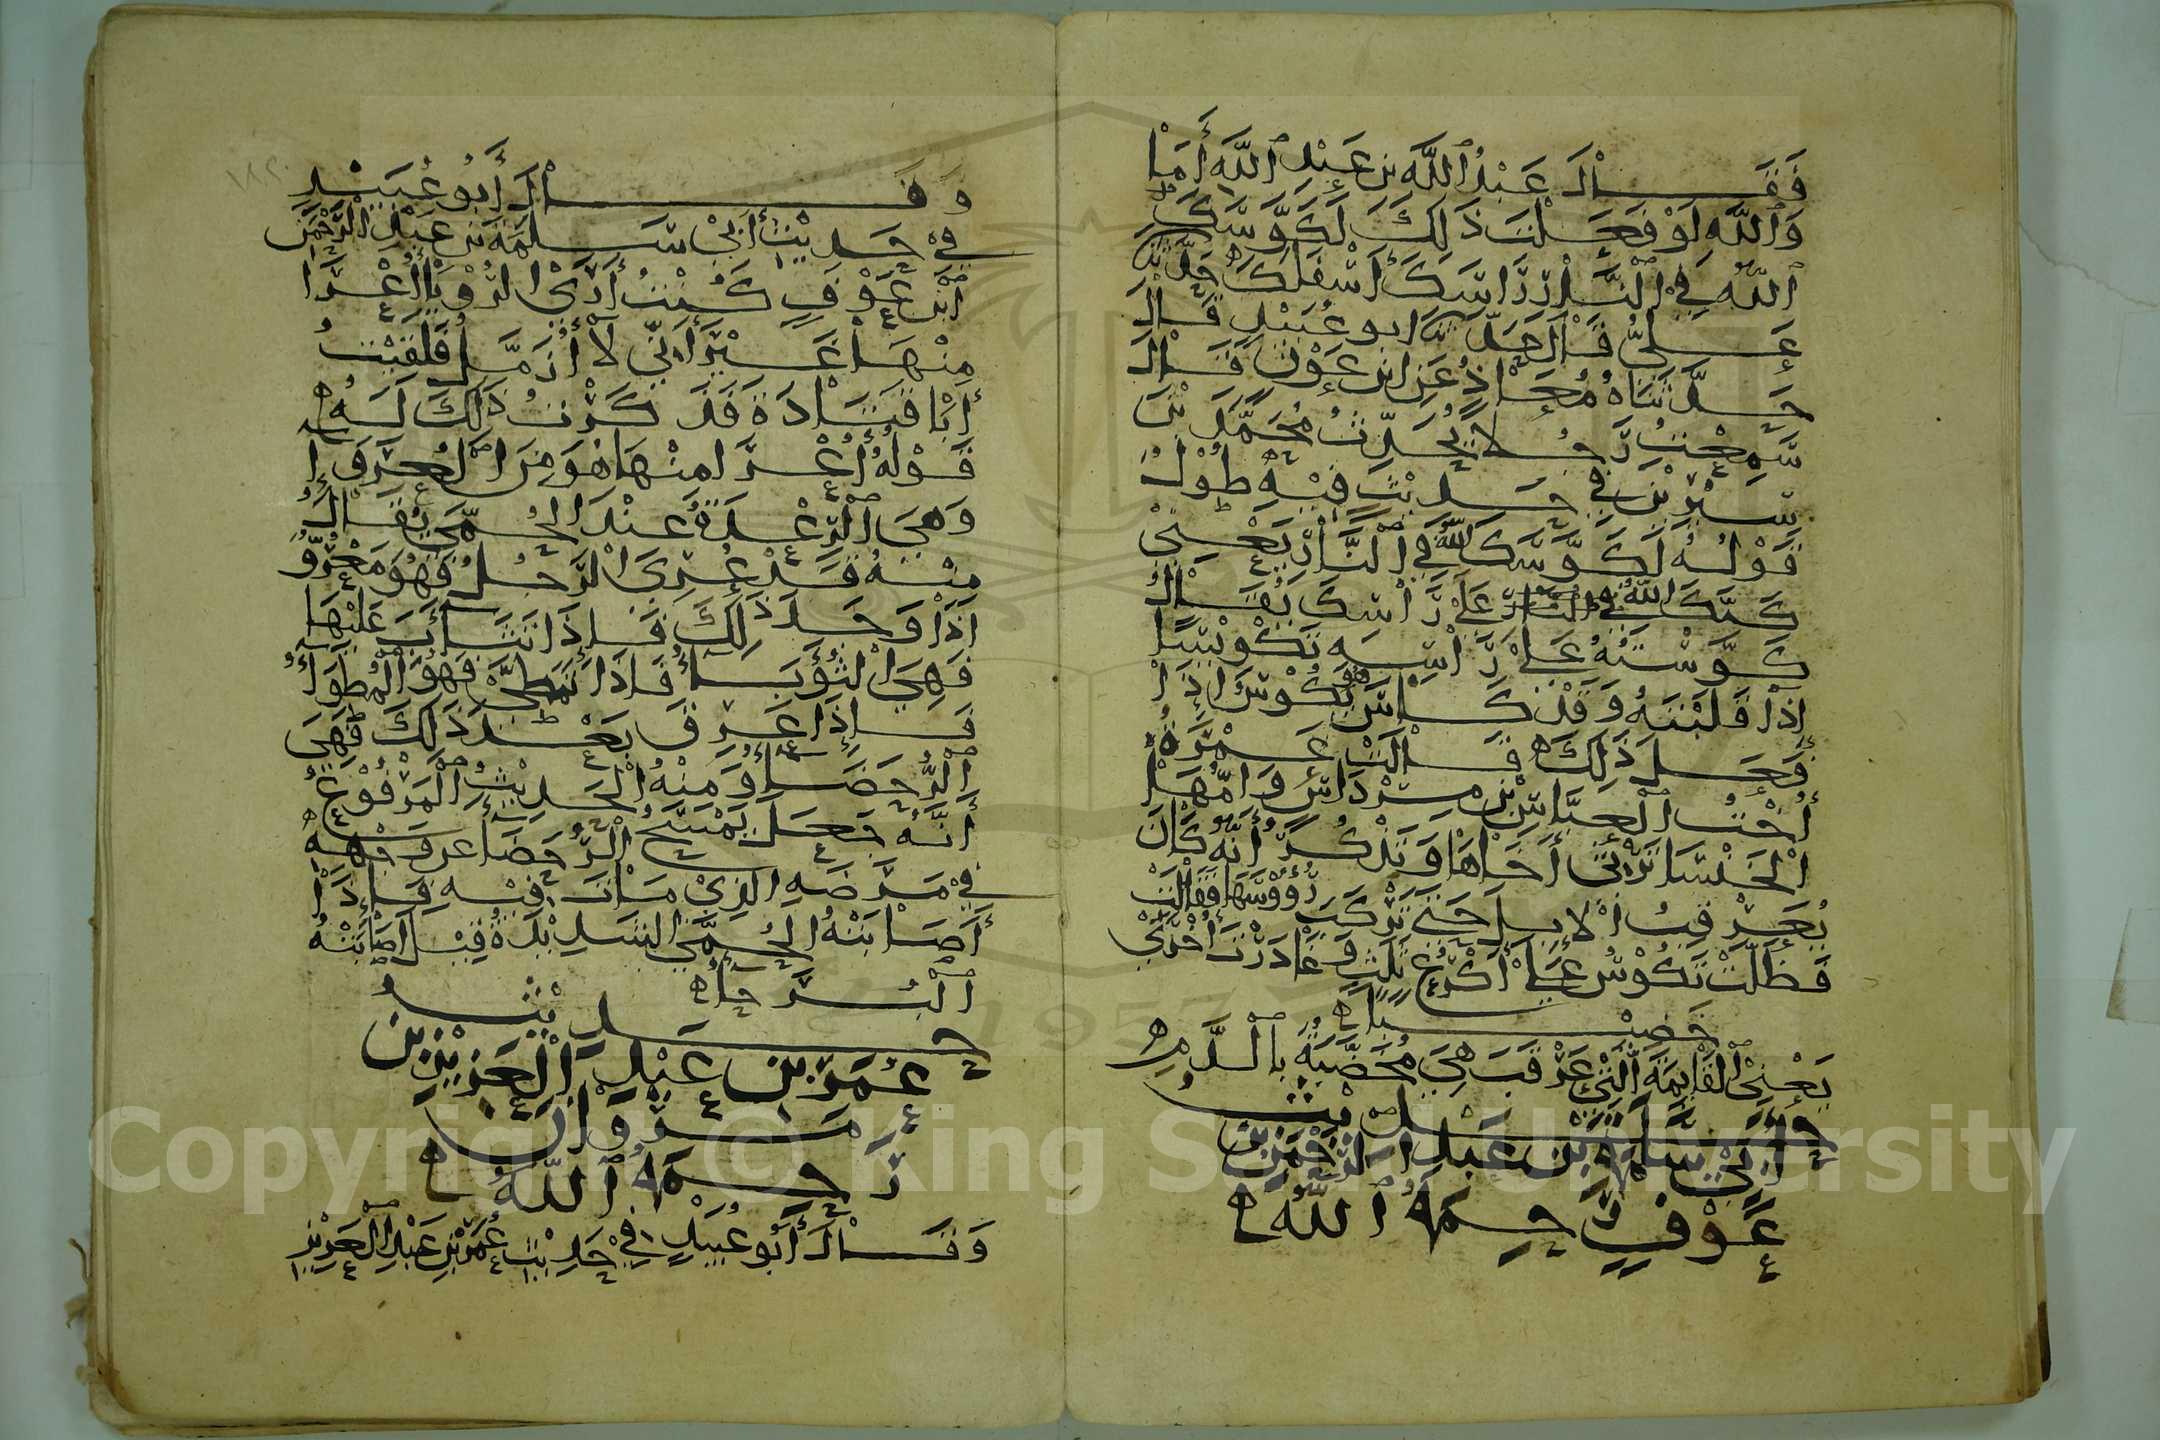 فَقَالَ عَبْدُ اللَّهِ بن عَبْدِ اللَّهِ أَمَا
وَاللَّهِ لَوْ فَعَلْتَ ذَلِكَ لَكَوَّسَكَ
اللَّهُ فِي النَّارِ رَأسَكَ أَسْفَلَكَ حَدَّثَنَا
عَلِيٌّ قَالَ حَدَّثَنَا ابو عُبَيْدٍ قَالَ
حَدَّثَنَاهُ مُعَاذٌ عَنِ ابنِ عَوْنٍ قَالَ
سَمِعْتُ رَجُلًا يُحَدِّثُ مُحَمَّدَ بْنَ
سِيْرِيْنَ فِي حَدِيْثٍ فِيْهِ طُوْلٌ
قَوْلُهُ لَكَوَّسَكَ اللَّهُ فِي النَّارِ يَعْنِيْ
كَبَّكَ اللَّهُ فِي النَّارِ عَلَى رَأسِكَ يُقَالُ
كَوَّسْتُهُ عَلَى رَأسِهِ تَكْوِيْسًا
إِذَا قَلَبْتَهُ وَقَدْ كَاسَ هُوَ يَكُوْسُ إِذَا
فَعَلَ ذَلِكَ قَالَتْ عَمْرَةُ
أُخْتُ الْعَبَّاسِ بْنِ مِرْدَاسٍ وَأُمُّهَا
الْخَنْسَا تَرْثِي أَخَاهَا وَتَذْكُرُ أَنَّهُ كَانَ
يُعَرْقِبُ الْإِبِلَ حَتَّى تَرْكَبَ رُؤُوْسَهَا فَقَالَتْ
فَظَلَّتْ تَكُوْسُ عَلَى أَكْرُعٍ ثَلَثٍ وَغَادَرْتَ أُخْرَى
خَضِيْبَا
يَعْنِي الْقَائِمَةَ الَّتِي عَرْقَبَ هِيَ مُخَضَّبَةٌ بِالدَّمِ
حَدِيْثُ
أَبِيْ سَلَمَةَ بْنِ عَبْدِ الرَّحْمَنِ بْنِ
عَوْفٍ رَحِمَهُ اللَّهُ
وَقَالَ أَبُو عُبَيْدٍ
فِيْ حَدِيْثِ أَبِيْ سَلَمَةَ بن عَبْدِ الرَّحْمَنِ
ابْنِ عَوْفٍ كُنْتُ أَرَى الرُّؤْيَا أُعْرَا
مِنْهَا غَيْرَ أَنِّي لَا أُزَمَّلُ فَلَقِيْتُ
أَبَا قَتَادَةَ فَذَكَرْتُ ذَلِكَ لَهُ
قَوْلُهُ أُعْرَا مِنْهَا هُوَ مِنَ الْعُرَوَا
وَهِيَ الرِّعْدَةُ عِنْدَ الْحُمَّى يُقَالُ
مِنْهُ قَدْ عُرِيَ الرَّجُلُ فَهُوَ مَعْرُوٌّ
إِذَا وَجَدَ ذَلِكَ فَإِذَا تَثَاءَبَ عَلَيْهَا
فَهِيَ الثُّؤَبَاءُ فَاذَا تَمَطَّى فَهُوَ الْمُطَوَاءُ
فَإِذَا عَرِقَ بَعْدَ ذَلِكَ فَهِيَ
الرُّحَضَاءُ وَمِنْهُ الْحَدِيْثُ الْمَرْفُوْعُ
أَنَّهُ جَعَلَ يَمْسَحُ الرُّحَضَا عن وَجْهِهِ
فِيْ مَرَضِهِ الَّذِيْ مَاتَ فِيْهِ فَإِذَا
أَصَابَتْهُ الْحُمَّى الشَّدِيْدَةُ قِيْلَ أَصَابَتْهُ
الْبُرَحَاءُ
حَدِيْثُ
عُمَرَ بْنِ عَبْدِ الْعَزِيْزِ بْنِ
مَرْوَانَ
رَحِمَهُ اللَّهُ
وَقَالَ أَبُو عُبَيْدٍ فِيْ حَدِيْثِ عُمَرَ بْنِ عَبْدِ الْعَزِيْزِ
Copyright © King Saud University
1957